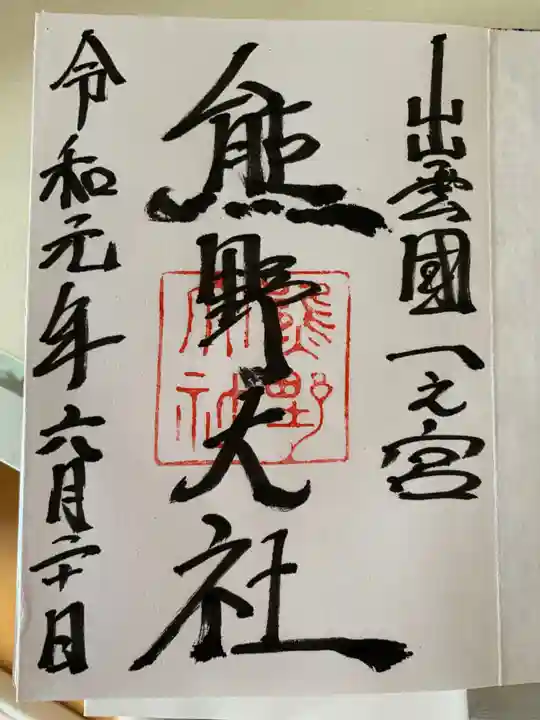 出雲國一之宮
熊野大社
熊野大社
令和元年六月二十日